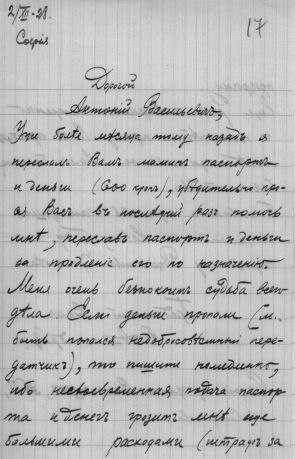 2/III-28.
17
Софія
Дорогой
Антоній Васильевичъ,
Уже болѣе мѣсяца тому назадъ я
переслалъ Вамъ мамин паспортъ
и деньги (600 кронъ), убѣдительно про-
ся Васъ въ послѣдній разъ помочь
мнѣ, переславъ паспортъ и деньги
за продленіе его по назначенію.
Меня очень безпокоитъ судьба всего
дѣла. Если деньги пропали (м.
быть попался недобросовѣстный пере-
датчикъ), то пишите немедленно,
ибо несвоевременная подача паспор-
та и денегъ грозитъ мнѣ еще
большими расходами (штрафъ за